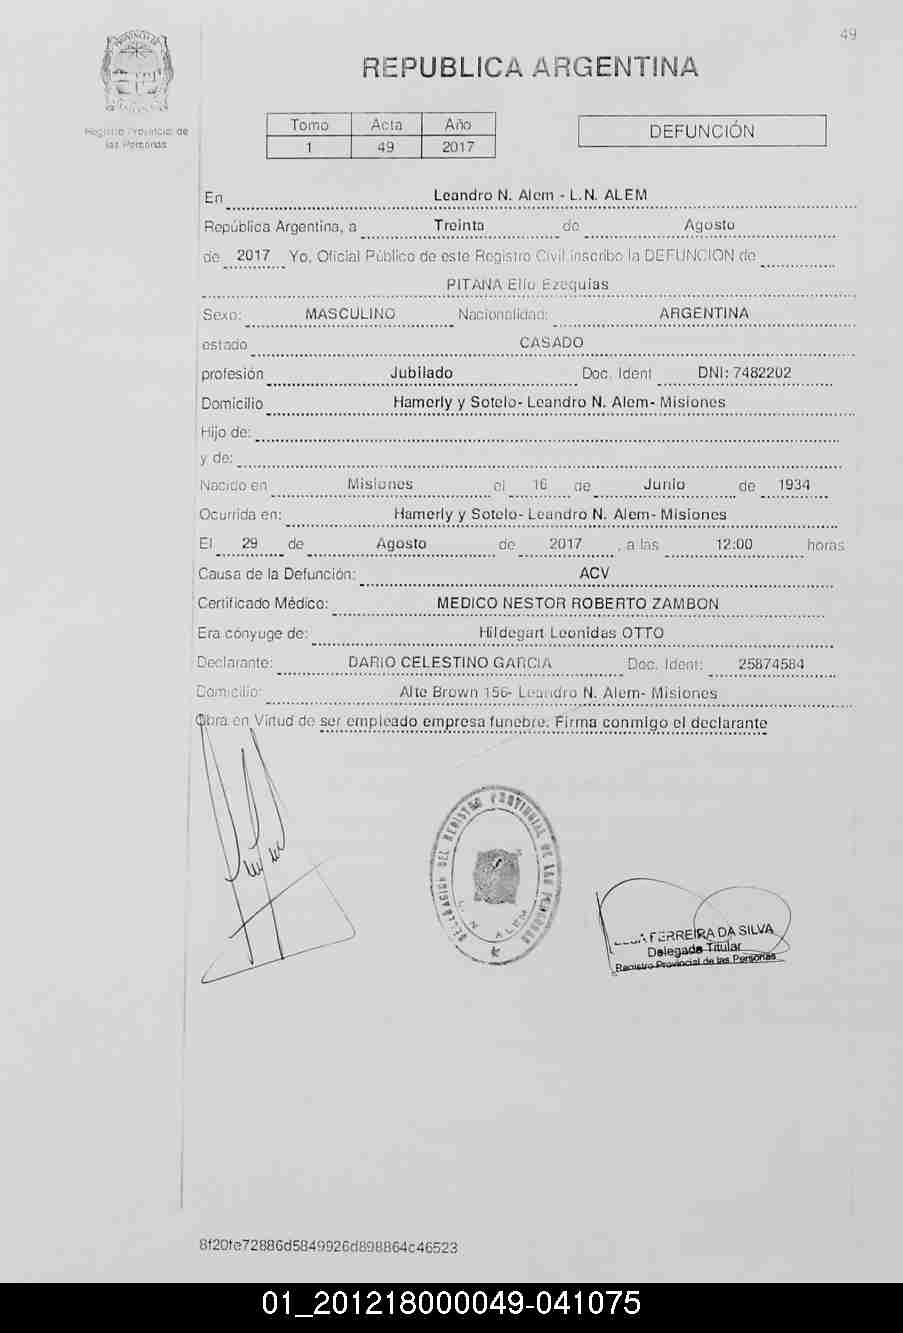 49
REPUBLICA ARGENTINA
Registro Provincial de
las Personas
Tomo Acta Año
1 49 2017
DEFUNCIÓN
En Leandro N. Alem - L.N. ALEM
República Argentina, a Treinta de Agosto
de 2017 Yo, Oficial Público de este Registro Civil inscribo la DEFUNCION de
PITANA Elio Ezequias
Sexo: MASCULINO Nacionalidad: ARGENTINA
estado CASADO
profesión Jubilado Doc. Ident DNI: 7482202
Domicilio Hamerly y Sotelo- Leandro N. Alem- Misiones
Hijo de:
y de:
Nacido en Misiones el 16 de Junio de 1934
Ocurrida en: Hamerly y Sotelo- Leandro N. Alem- Misiones
El 29 de Agosto de 2017, a las 12:00 horas
Causa de la Defunción: ACV
Certificado Médico: MEDICO NESTOR ROBERTO ZAMBON
Era cónyuge de: Hildegart Leonidas OTTO
Declarante: DARIO CELESTINO GARCIA Doc. Ident: 25874584
Domicilio: Alte Brown 156- Leandro N. Alem- Misiones
Obra en Virtud de ser empleado empresa funebre. Firma conmigo el declarante
DELEGACION DEL REGISTRO PROVINCIAL DE LAS PERSONAS
L. N. ALEM
FERREIRA DA SILVA
Delegada Titular
Registro Provincial de las Personas
8f20fe72886d5849926d898864c46523
01_201218000049-041075